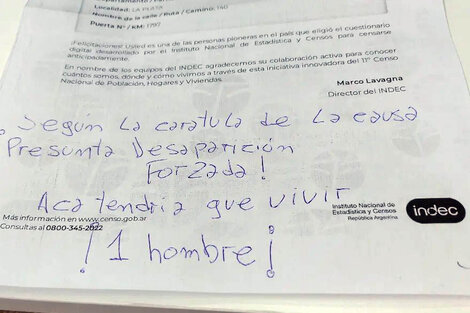 Localidad: LA PLATA
Nombre de la calle / Ruta / Camino: 140
Puerta N° / KM: 1797
¡Felicitaciones! Usted es una de las personas pioneras en el país que eligió el cuestionario
digital desarrollado por el Instituto Nacional de Estadística y Censos para censarse
anticipadamente.
En nombre de los equipos del INDEC agradecemos su colaboración activa para conocer
cuántos somos, dónde y cómo vivimos a través de esta iniciativa innovadora del 11° Censo
Nacional de Población, Hogares y Viviendas.
Marco Lavagna
Director del INDEC
. Según La caratula de La causa
Presunta Desaparición
Forzada!
Aca tendria que vivir
Más información en www.censo.gob.ar
Consultas al 0800-345-2022
¡1 hombre!
Instituto Nacional de
Estadística y Censos
República Argentina
indec